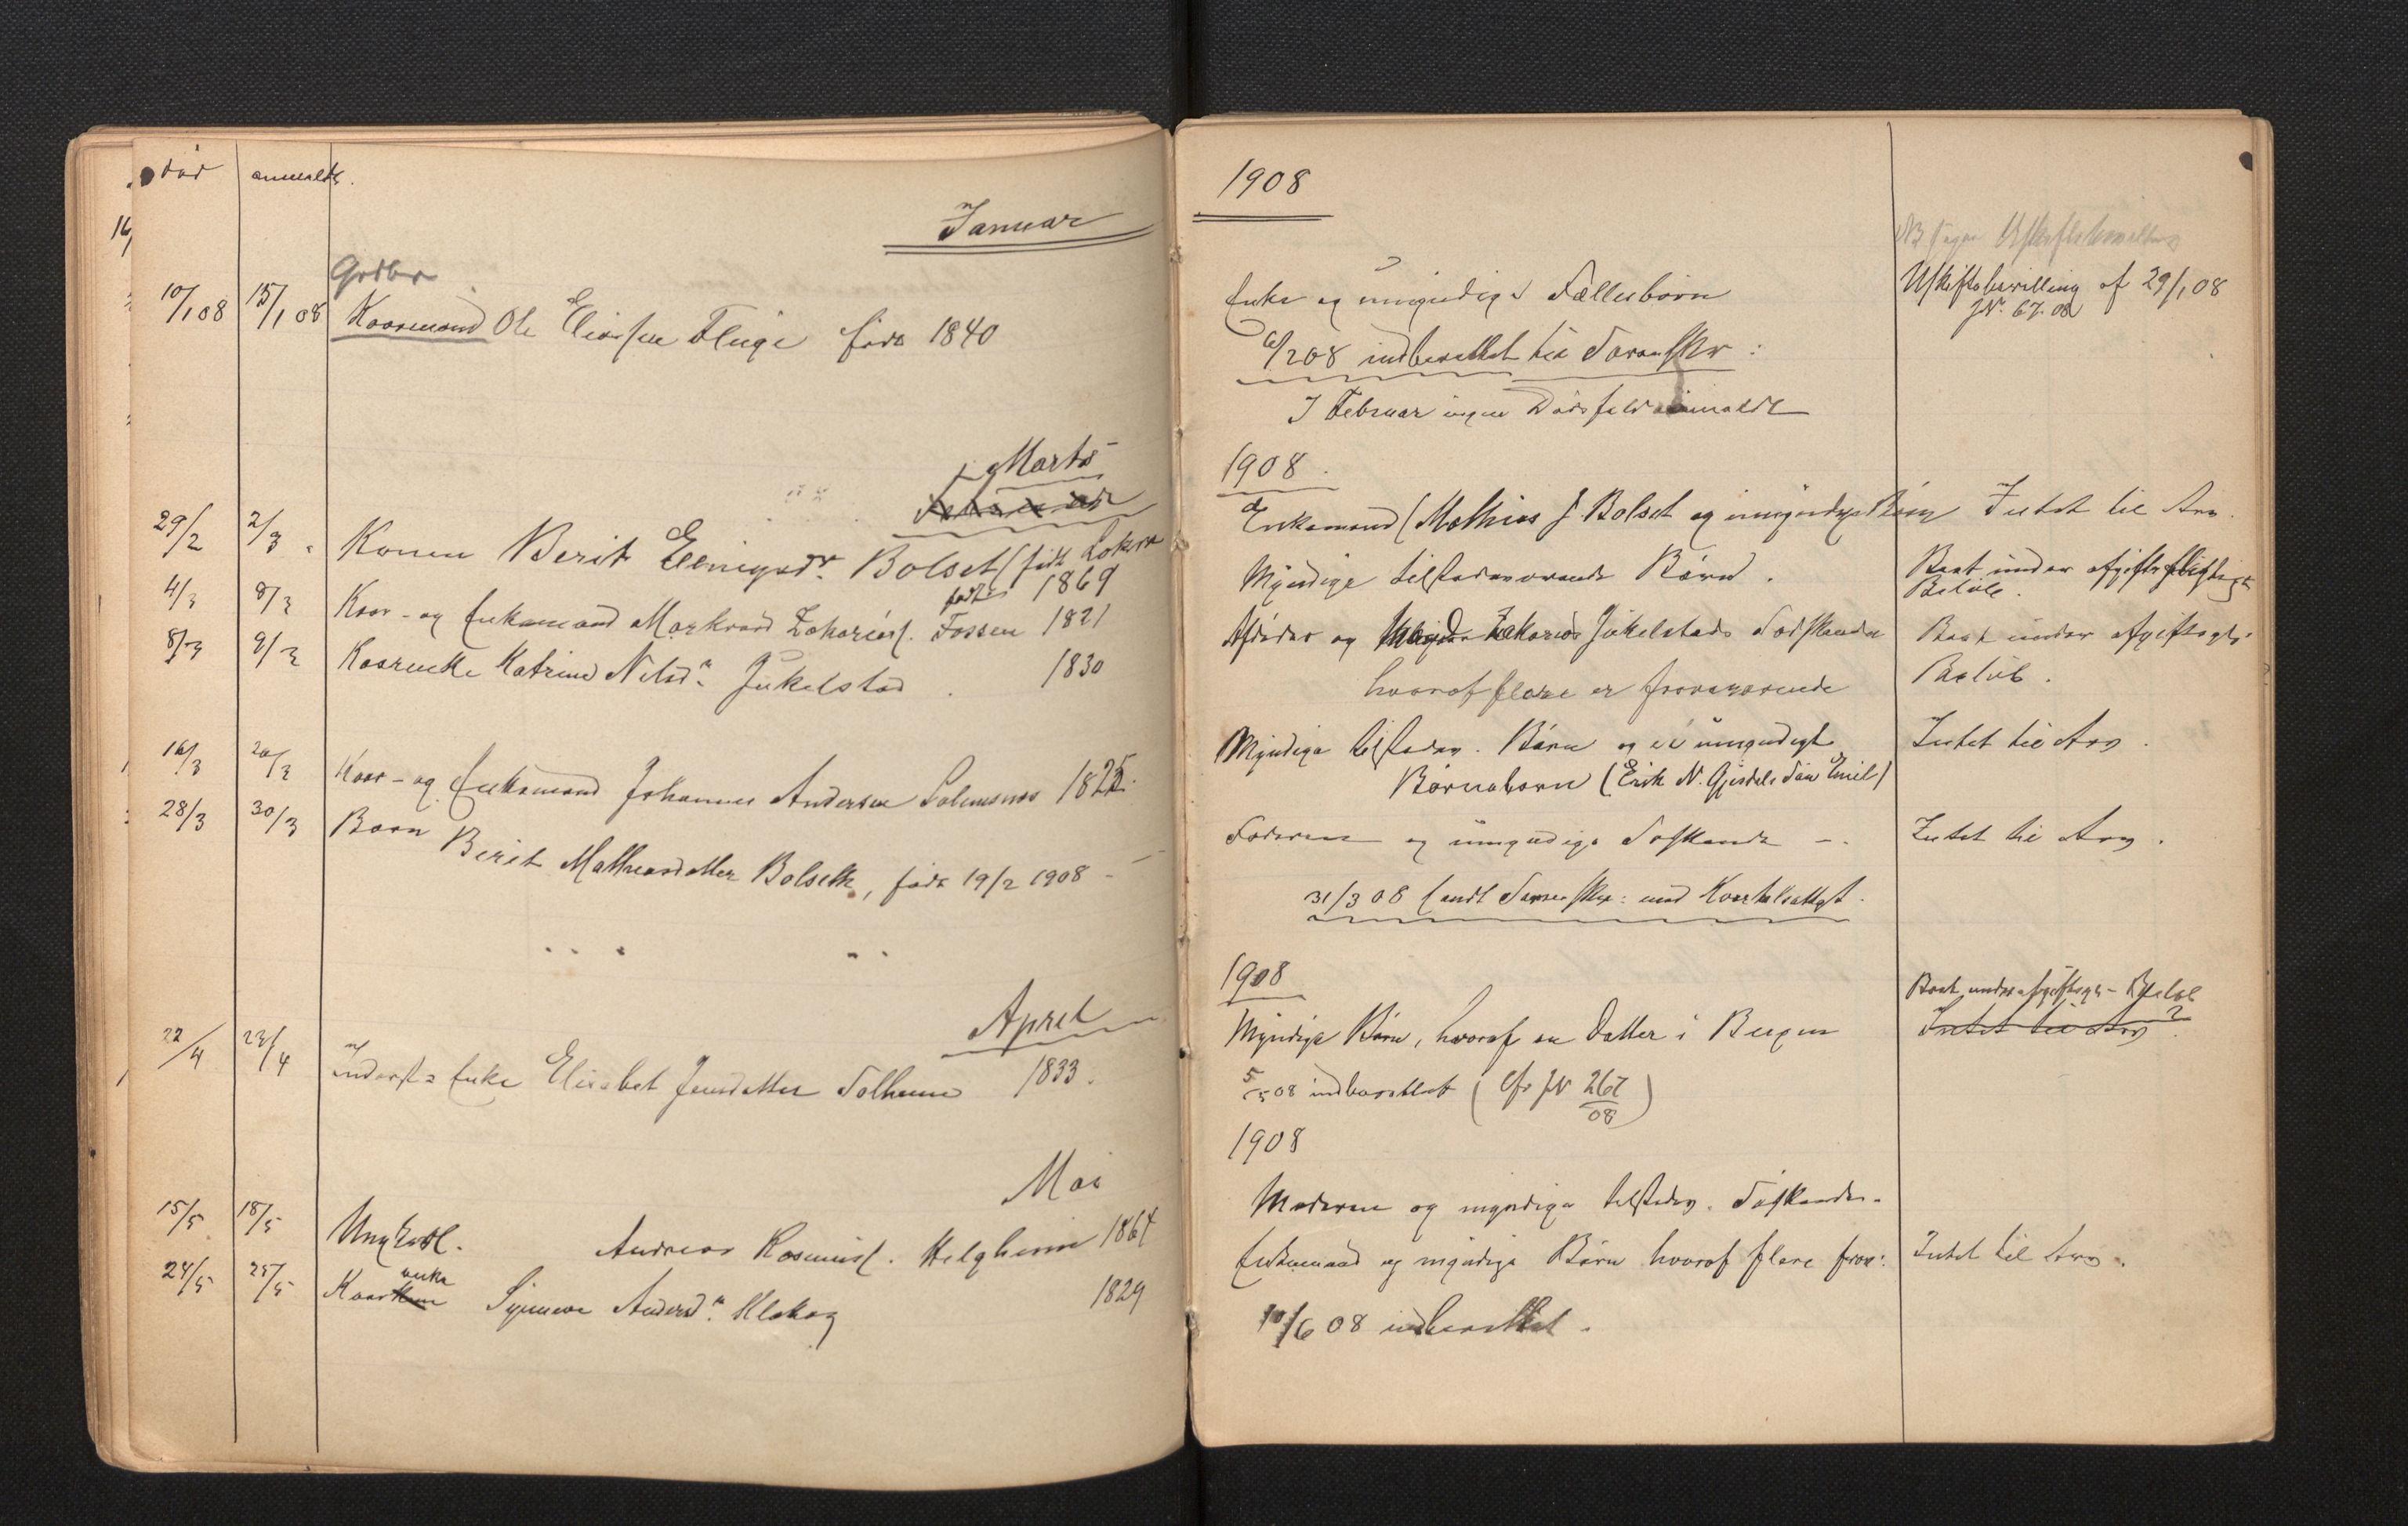 død anmeldt.
Januar
Grdbr
10/1 08 15/1 08 Kaarmand Ole Eliassen Fluge født 1840
Marts
29/2 2/3 Konen Berit Ellingsdr. Bolset (født 1869
4/3 8/3 Kaar- og Enkemand Markvard Zakarias. Fossen født 1821
8/3 9/3 Kaarenke Katrine Nilsd. Jukelstad 1830
16/3 20/3 Kaar- og Enkemand Johannes Andersen 1825.
28/3 30/3 Barn Berit Mathiasdatter Bolsett, født 19/2 1908
April
22/4 23/4 Inderst Enke Elisabet Jensdatter Solheim 1833.
Mai
15/5 18/5 Ungkarl. Andreas Rasmus. Helgheim 1864
24/5 25/5 Kaarenke Synneve Andersd. Klakeg 1829
1908
NB
Enke og umyndige Fællesbørn
Uskiftebevilling af 29/1 08
JN. 67. 08
6/2 08 indberettet til Sorenskr:
I Februar ingen Dødsfald anmeldt
1908.
Enkemand (Mathias J Bolset og umyndige Børn Intet til Arv.
Myndige tilstedeværende Børn. Boet under afgiftspligtigt
Beløb.
Afdødes og Zakarias Jukelstads Sødskende Boet under afgiftspl.
hvoraf flere er fraværende Beløb.
Myndige tilstedev. Børn og et umyndigt Intet til Arv.
Børnebarn (Erik N. Gjesdals Søn Emil)
Faderen og umyndige Søskende -. Intet til Arv.
31/3 08 sendt Sorenskr: med Kvartalsattest.
1908
Boet under afgiftspl- Beløb
Myndige Børn, hvoraf en Datter i Bergen Intet til Arv ?
5/5 08 indberettet (cfr JN 267/08)
1908
Moderen og myndige tilstedev. Søskende.
Enkemand og myndige Børn hvoraf flere frav: Intet til Arv.
10/6 08 indberettet.